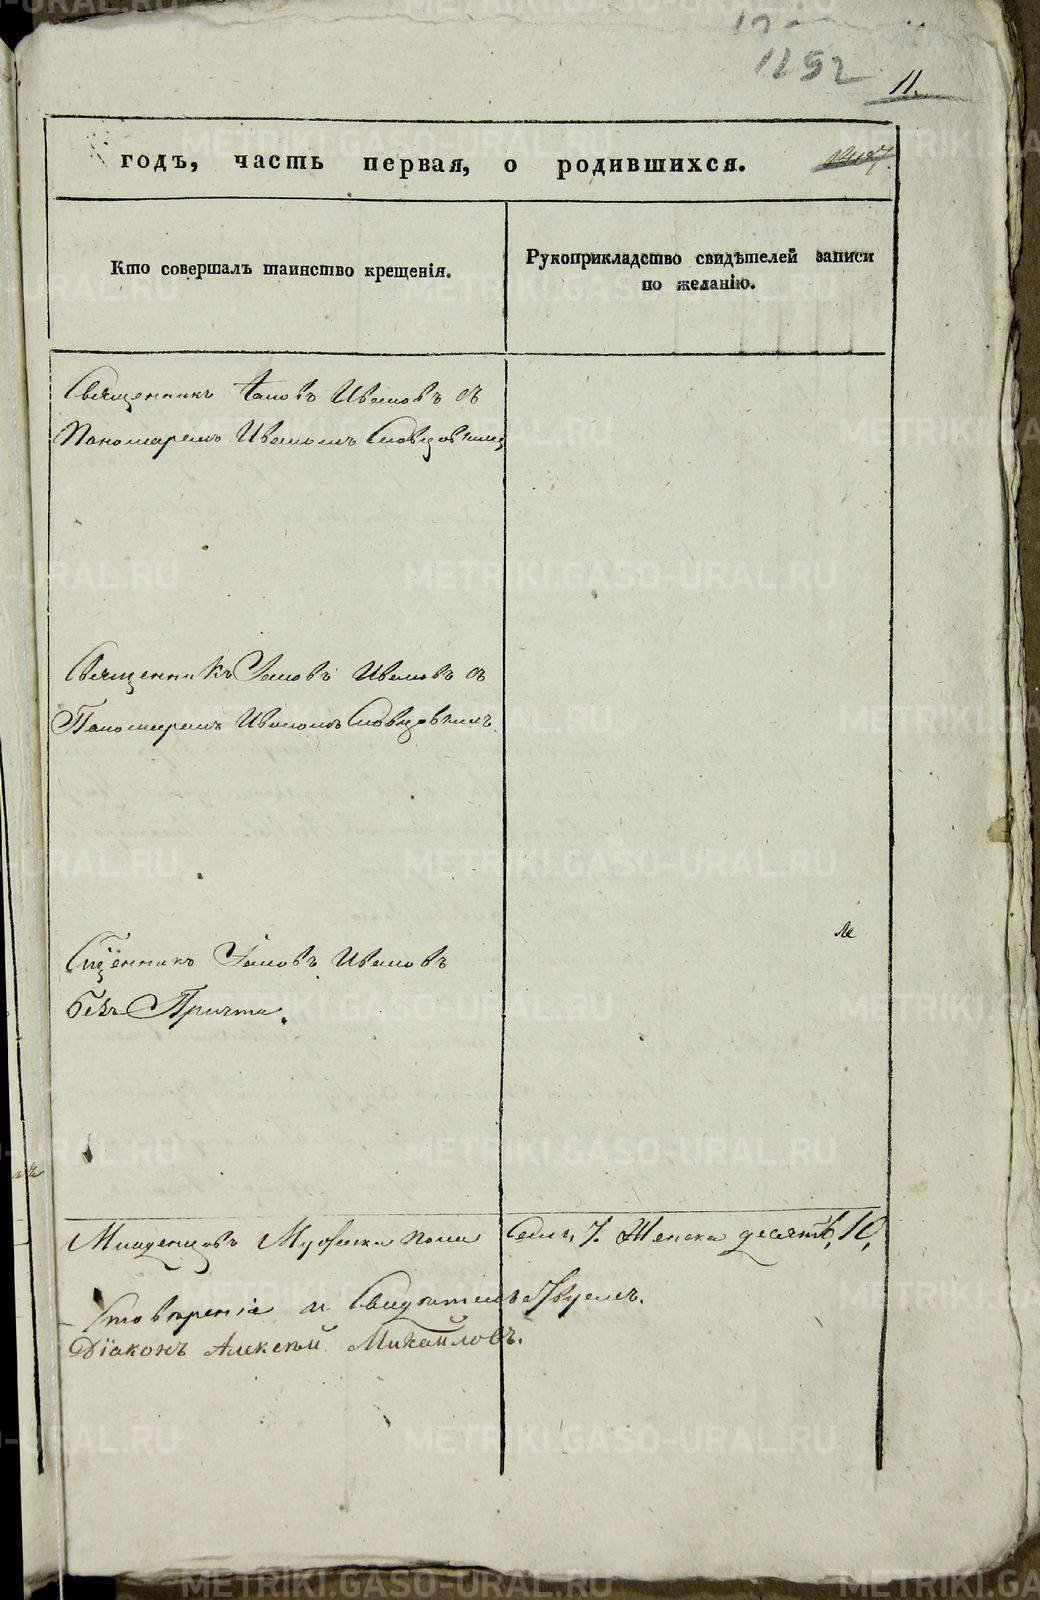 1252
11.
годъ, часть первая, о родившихся.
Кто совершалъ таинство крещенія.
Рукоприкладство свидѣтелей записи
по желанію.
Священникъ Іаковъ Ивановъ съ
Пономаремъ Иваномъ
Священникъ Іаковъ Ивановъ съ
Пономаремъ Иваномъ
Сщенникъ Іаковъ Ивановъ
безъ Причта.
Младенцовъ Мужеска пола Семь, 7. Женска десять, 10,
Свидѣтельствуемъ.
Діаконъ Алексѣй Михайловъ.
METRIKI.GASO-URAL.RU